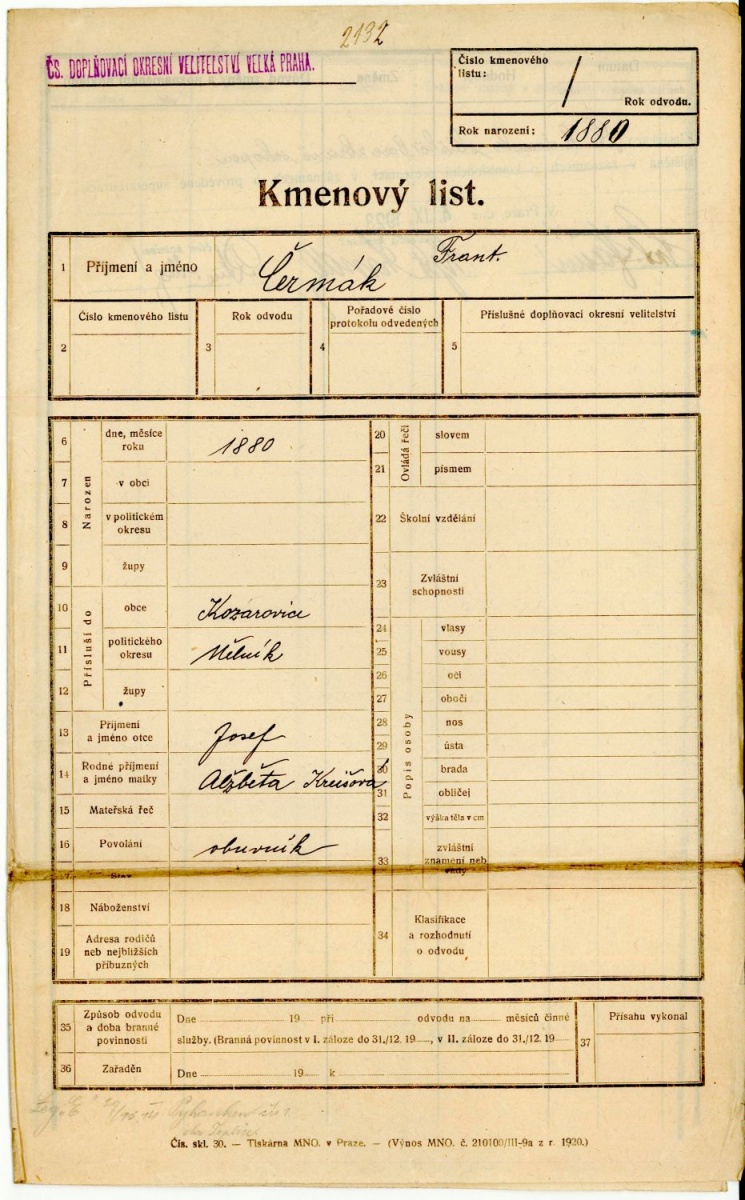 2132
ČS. DOPLŇOVACÍ OKRESNÍ VELITELSTVÍ VELKÁ PRAHA.
Číslo kmenového
listu:
/
Rok odvodu.
Rok narození: 1880
Kmenový list.
1 Příjmení a jméno Čermák Frant.
2 Číslo kmenového listu
3 Rok odvodu
4 Pořadové číslo
protokolu odvedených
5 Příslušné doplňovací okresní velitelství
Narozen
6 dne, měsíce
roku 1880
7 v obci
8 v politickém
okresu
9 župy
Přísluší do
10 obce Kozárovice
11 politického
okresu Mělník
12 župy
13 Příjmení
a jméno otce Josef
14 Rodné příjmení
a jméno matky Alžběta
15 Mateřská řeč
16 Povolání obuvník
17 Stav
18 Náboženství
19 Adresa rodičů
neb nejbližších
příbuzných
Ovládá řeči
20 slovem
21 písmem
22 Školní vzdělání
23 Zvláštní
schopnosti
Popis osoby
24 vlasy
25 vousy
26 oči
27 obočí
28 nos
29 ústa
30 brada
31 obličej
32 výška těla v cm
33 zvláštní
znamení neb
vady
34 Klasifikace
a rozhodnutí
o odvodu
35 Způsob odvodu
a doba branné
povinnosti
Dne 19 při odvodu na měsíců činné
služby. (Branná povinnost v I. záloze do 31./12. 19, v II. záloze do 31./12. 19
36 Zařaděn
Dne 19 k
37 Přísahu vykonal
Čís. skl. 30. — Tiskárna MNO. v Praze. — (Výnos MNO. č. 210100/III-9a z r. 1920.)